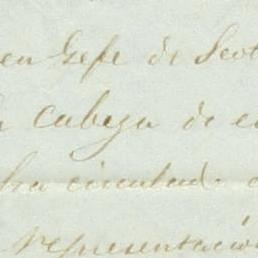 en Gefe de Scot
Cabeza de e
ha circulado
representación